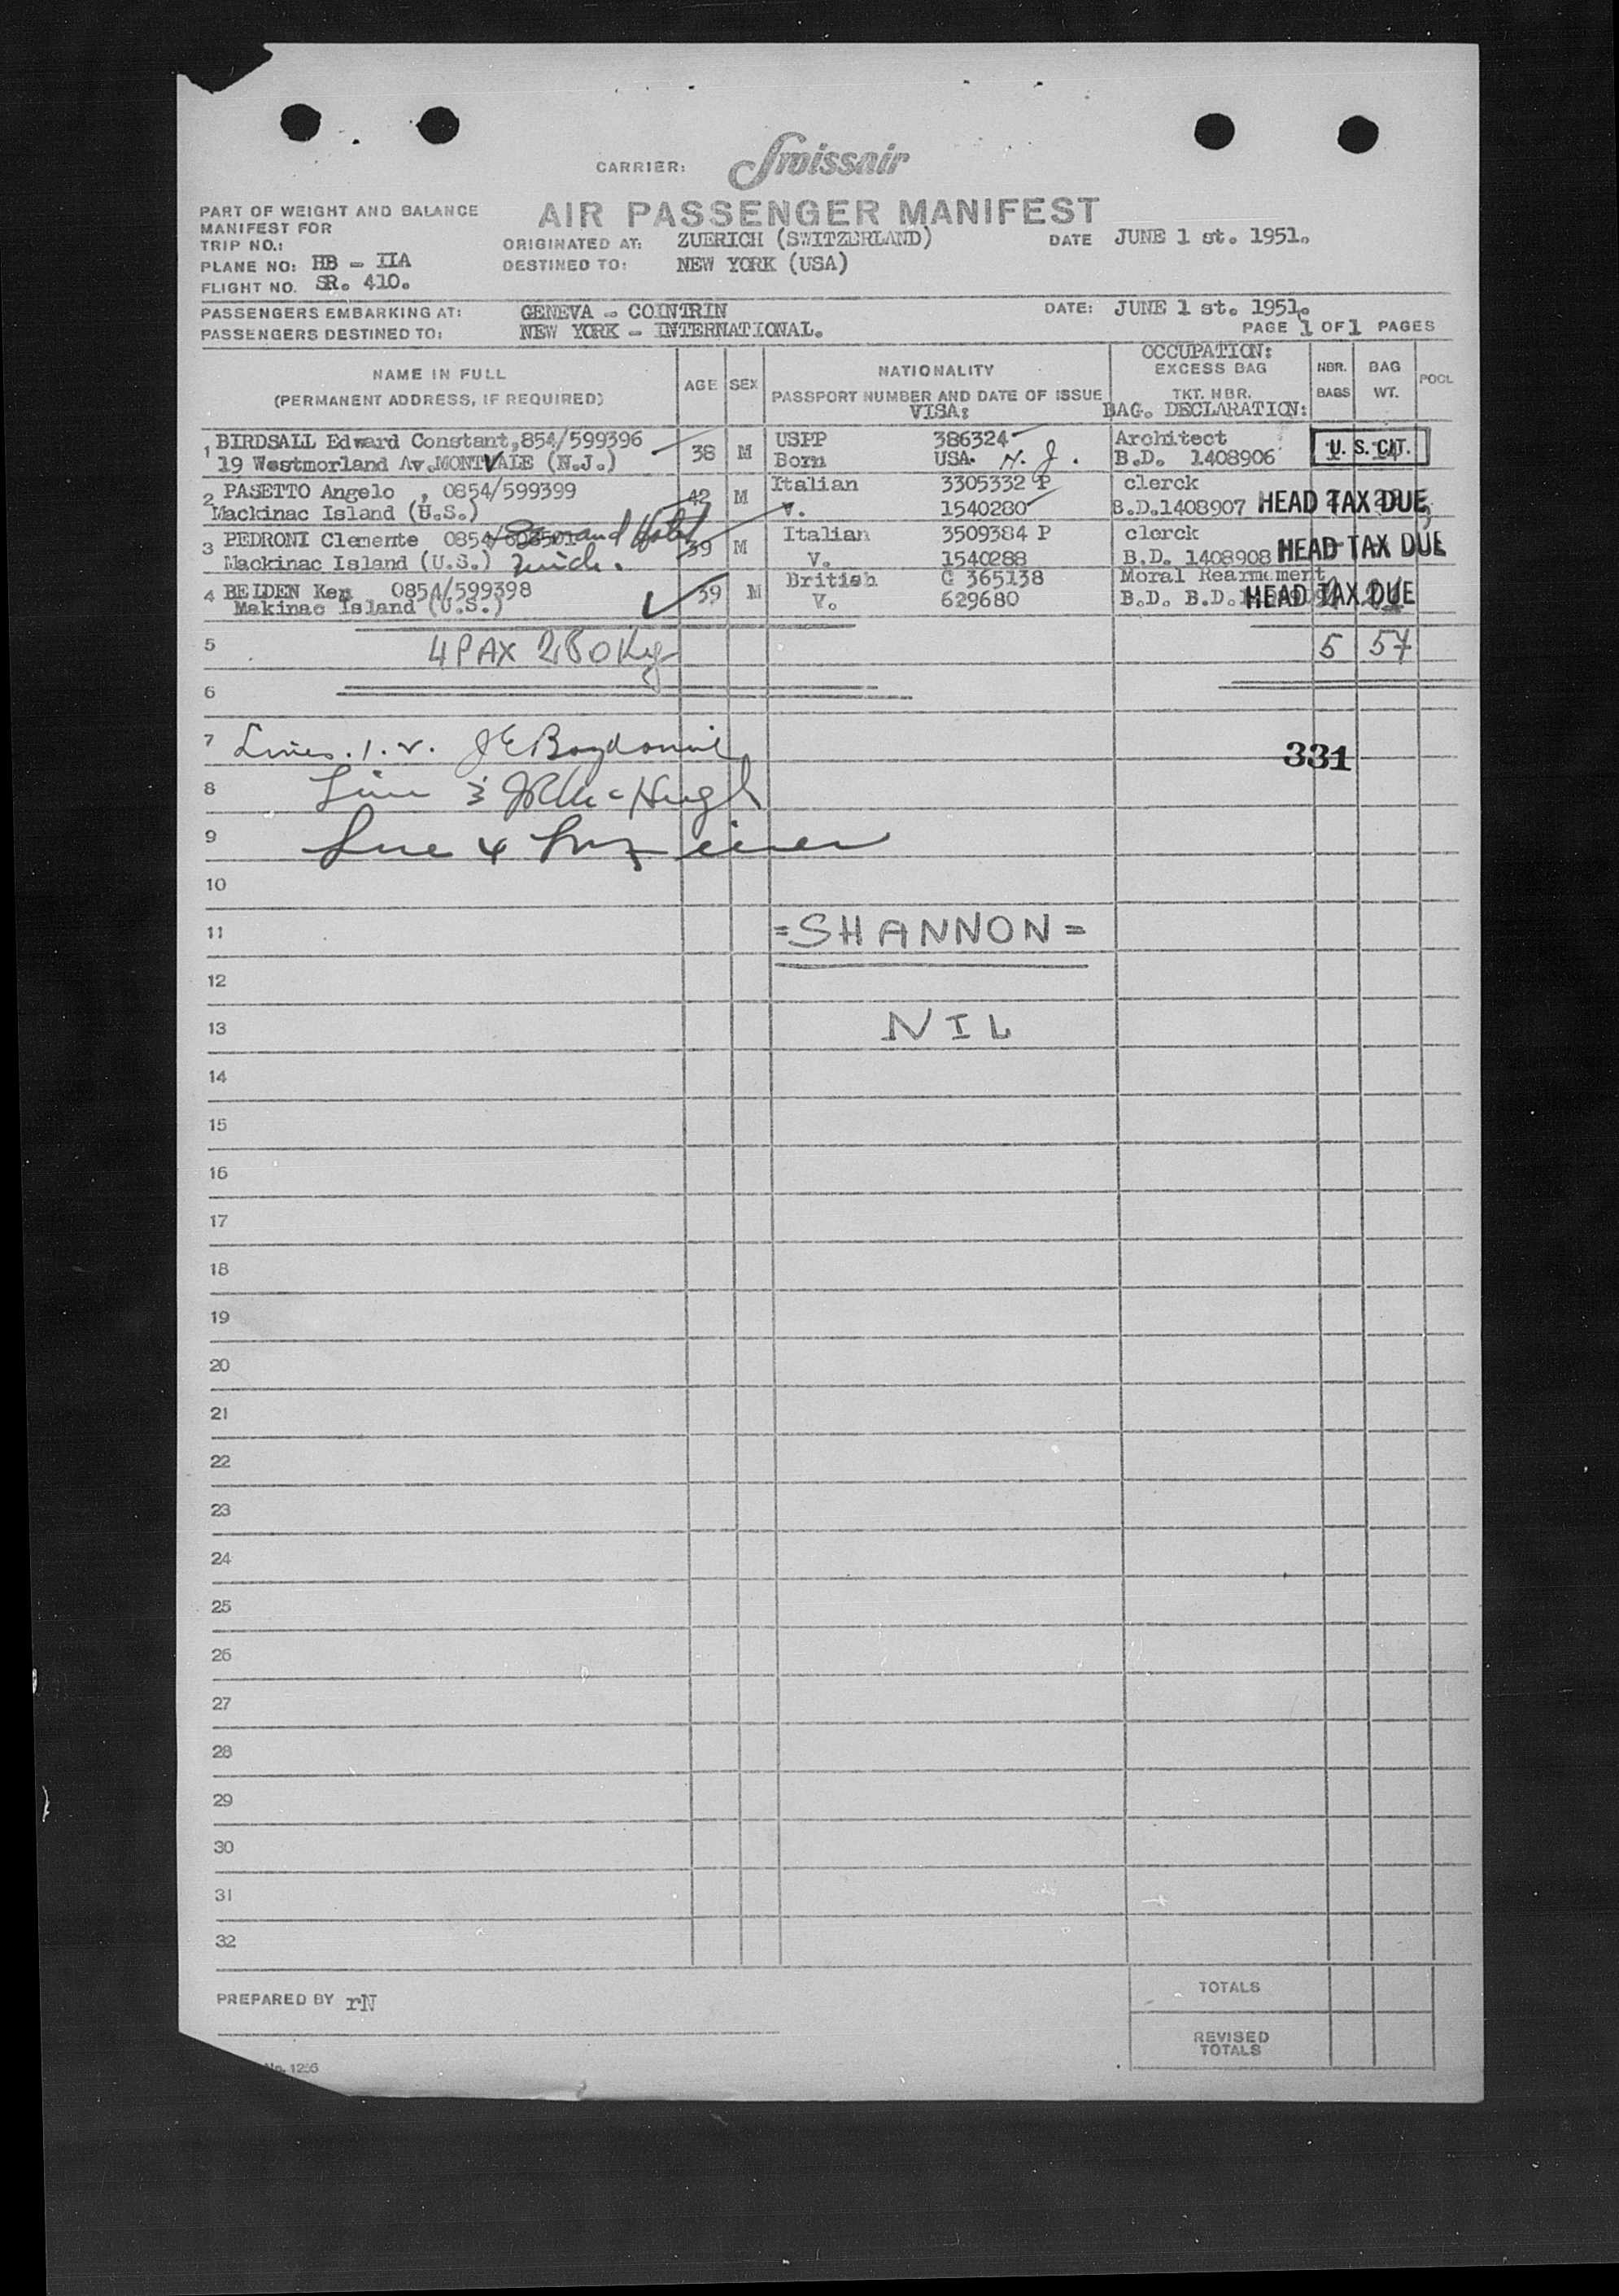 CARRIER: Swissair
PART OF WEIGHT AND BALANCE
MANIFEST FOR
AIR PASSENGER MANIFEST
TRIP NO.:
ORIGINATED AT: ZUERICH (SWITZERLAND) DATE JUNE 1 st. 1951.
PLANE NO: HB - IIA DESTINED TO: NEW YORK (USA)
FLIGHT NO. SR. 410.
PASSENGERS EMBARKING AT: GENEVA - COINTRIN DATE: JUNE 1 st. 1951.
PASSENGERS DESTINED TO: NEW YORK - INTERNATIONAL. PAGE 1 OF 1 PAGES
NAME IN FULL
(PERMANENT ADDRESS, IF REQUIRED)
AGE SEX
NATIONALITY
PASSPORT NUMBER AND DATE OF ISSUE
VISA:
OCCUPATION:
EXCESS BAG
TKT. NBR.
BAG. DECLARATION:
NBR. BAGS
BAG WT.
POCL
1 BIRDSALL Edward Constant, 854/599396 38 M USPP 386324 Architect U. S. CIT.
19 Westmorland Av. MONTVALE (N.J.) Born USA. N. J. B.D. 1408906
2 PASETTO Angelo , 0854/599399 42 M Italian 3305332 P clerck
Mackinac Island (U.S.) V. 1540280 B.D.1408907 HEAD TAX DUE
3 PEDRONI Clemente 0854/ 39 M Italian 3509384 P clerck
Mackinac Island (U.S.) Zurich. V. 1540288 B.D. 1408908 HEAD TAX DUE
4 BELDEN Ken 0854/599398 39 M British C 365138 Moral Rearmement
Makinac Island (U.S.) V. 629680 B.D. B.D. HEAD TAX DUE
5 4 PAX 280Kg 5 57
6
7 Lines. 1. 2. J E
331
8 Line 3 McHugh
9 Line 4
10
11 =SHANNON=
12
13 NIL
14
15
16
17
18
19
20
21
22
23
24
25
26
27
28
29
30
31
32
PREPARED BY rN
TOTALS
REVISED
TOTALS
No. 1256